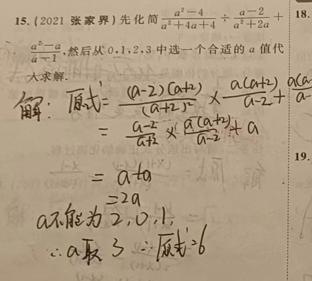 15. (2021 张家界) 先化简 \frac{a²-4}{a²+4a+4} ÷ \frac{a-2}{a²+2a} +
\frac{a²-a}{a-1}, 然后从 0,1,2,3 中选一个合适的 a 值代
入求解.
解: 原式 = \frac{(a-2)(a+2)}{(a+2)²} × \frac{a(a+2)}{a-2} +
= \frac{a-2}{a+2} × \frac{a(a+2)}{a-2} + a
= a+a
=2a
a不能为 2, 0, 1,
∴ a取 3 ∴ 原式=6
18.
19.